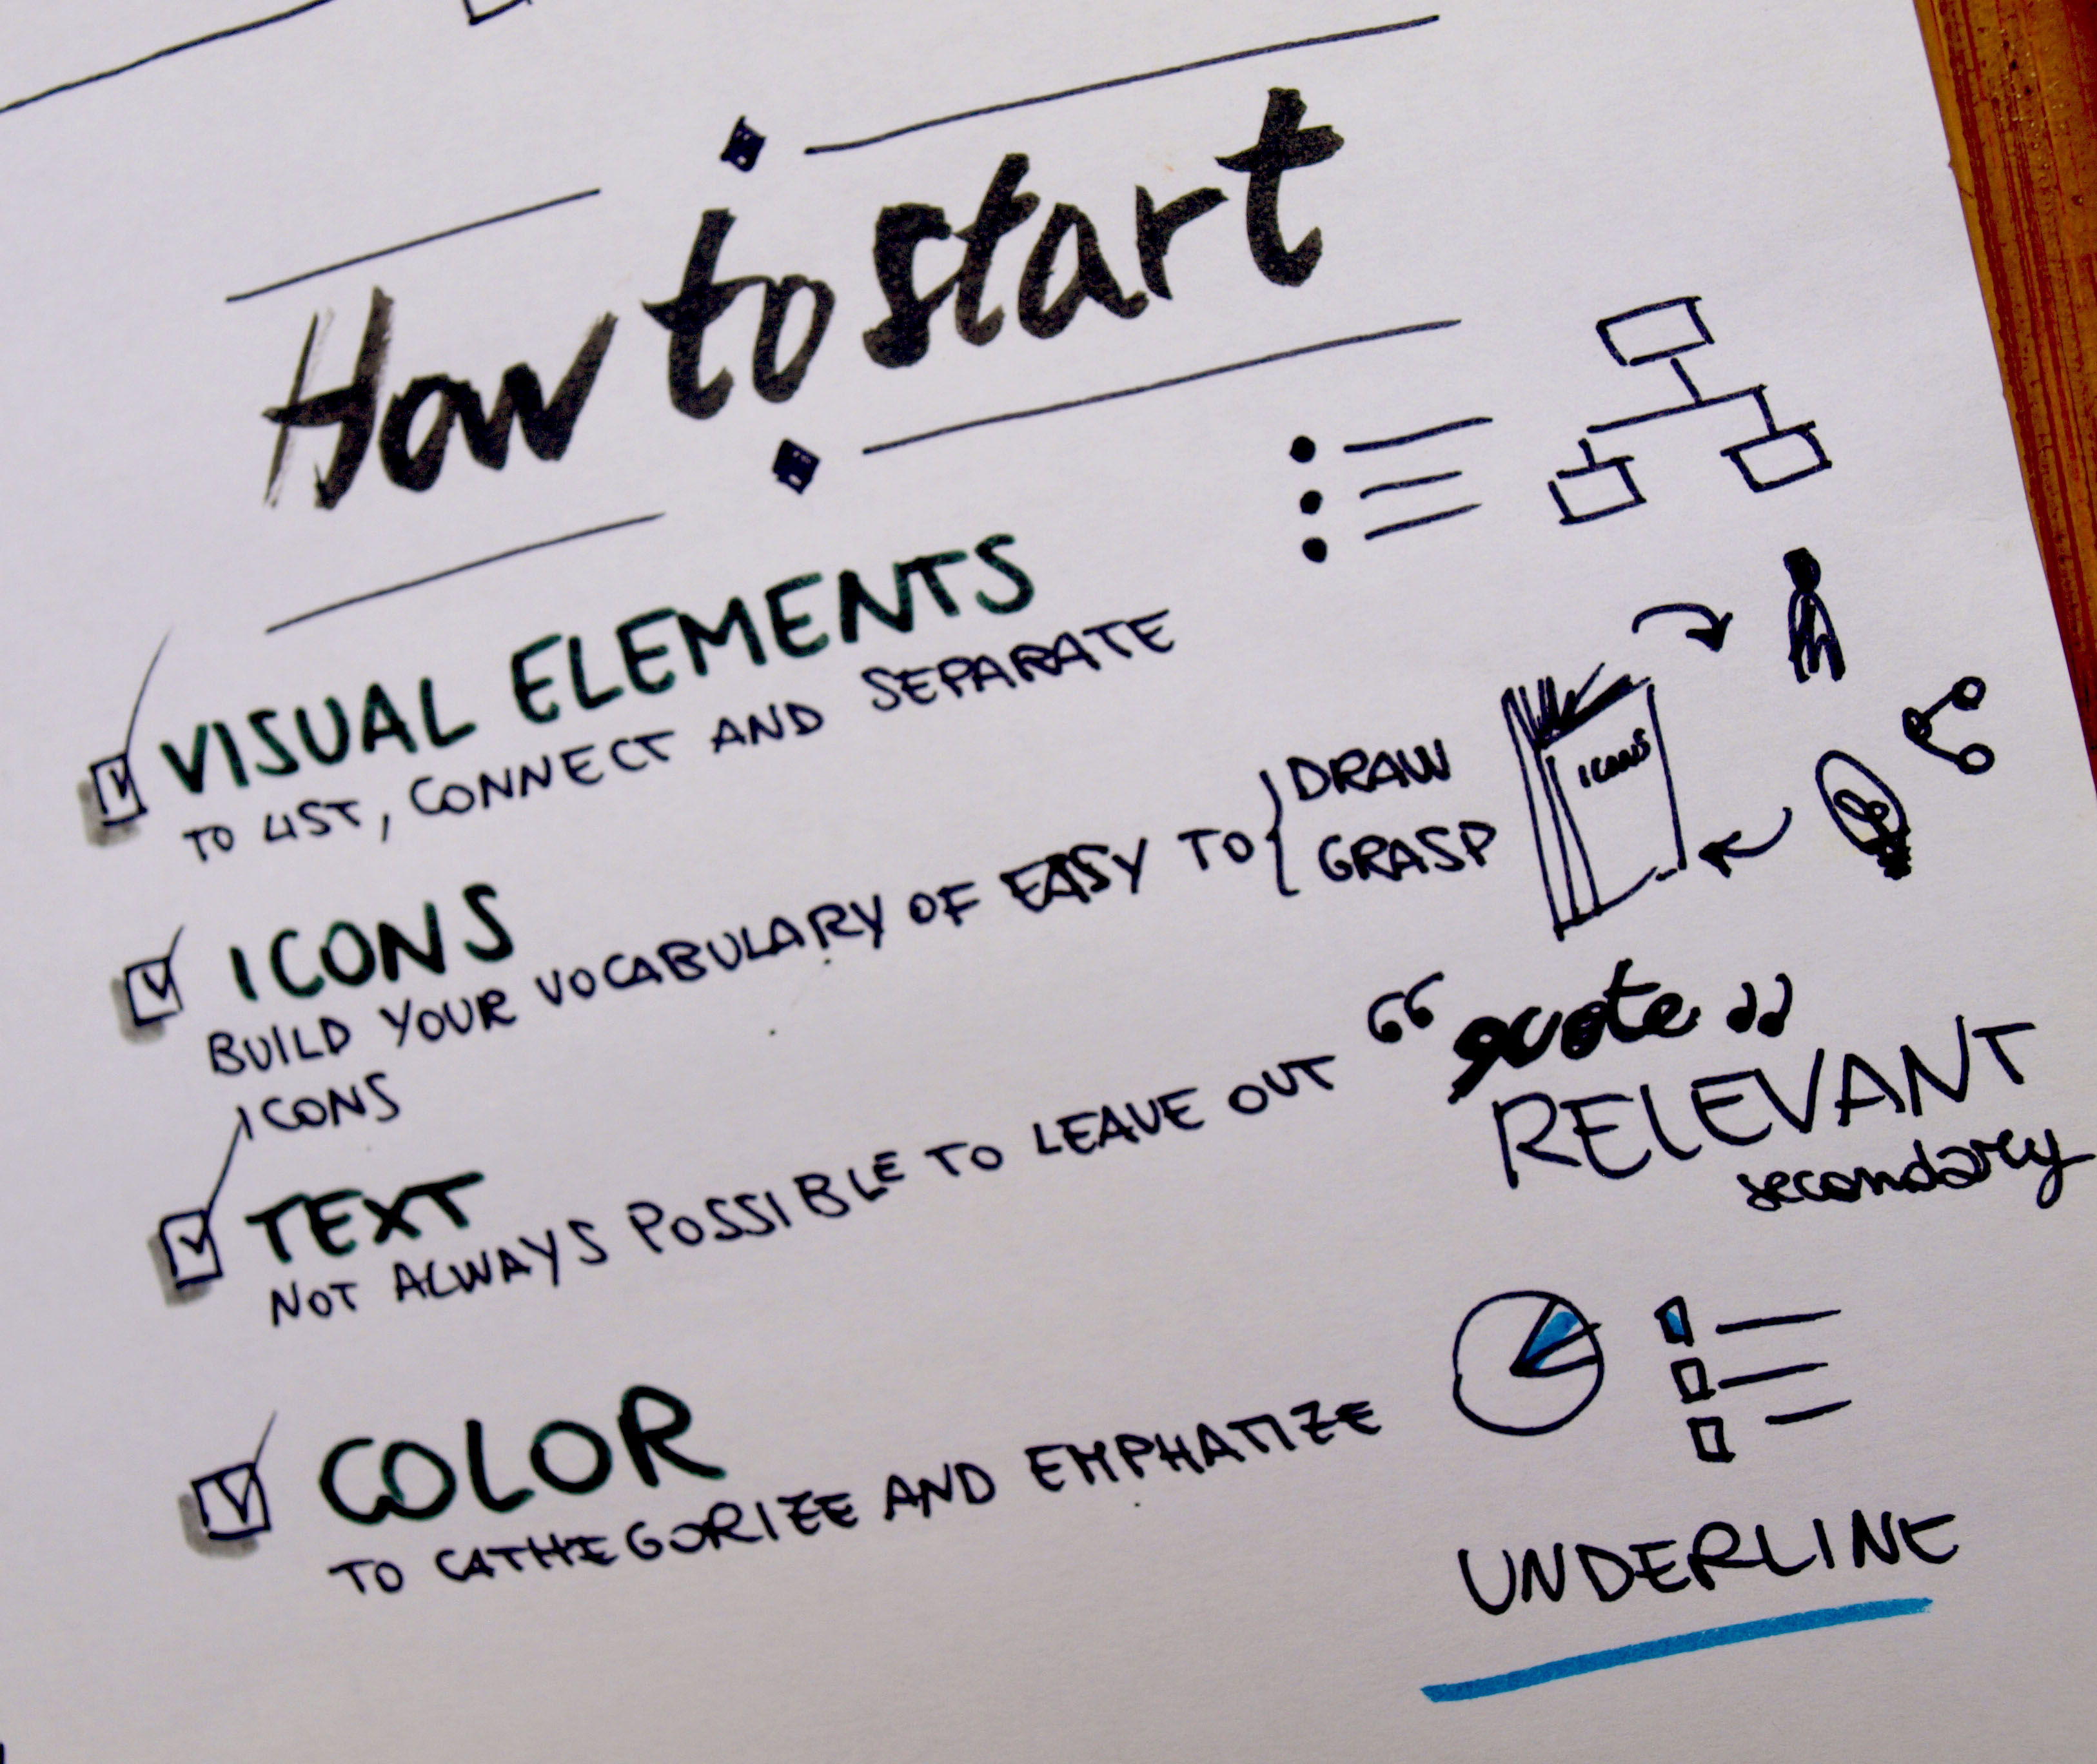 How to start
VISUAL ELEMENTS
TO LIST, CONNECT AND SEPARATE
ICONS
BUILD YOUR VOCABULARY OF EASY TO { DRAW
GRASP
ICONS
ICONS
TEXT
NOT ALWAYS POSSIBLE TO LEAVE OUT
“quote”
RELEVANT
secondary
COLOR
TO CATHEGORIZE AND EMPHATIZE
UNDERLINE